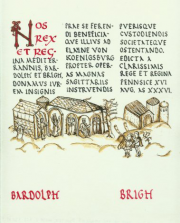 NOS
REX
ET REG
INA MEDITER
RANNIS, BARDOLPH ET BRIGH,
DONAMUS IUR
EM INSIGNIS
PRAE SE FEREN
DI BENEFICIA
QUE ILLIUS AD
ELAINE VON
KOENIGSBURG
PROPTER OPER
AS MAGNAS
SAGITTARIIS
INSTRUENDIS
PUERISQUE
CUSTODIENDIS
SOCIETATEQUE
OSTENTANDO.
EDICTA A
CLARISSIMIS
REGE ET REGINA
PENNSICE XVI
AUG. AS XXXVI.
BARDOLPH
BRIGH